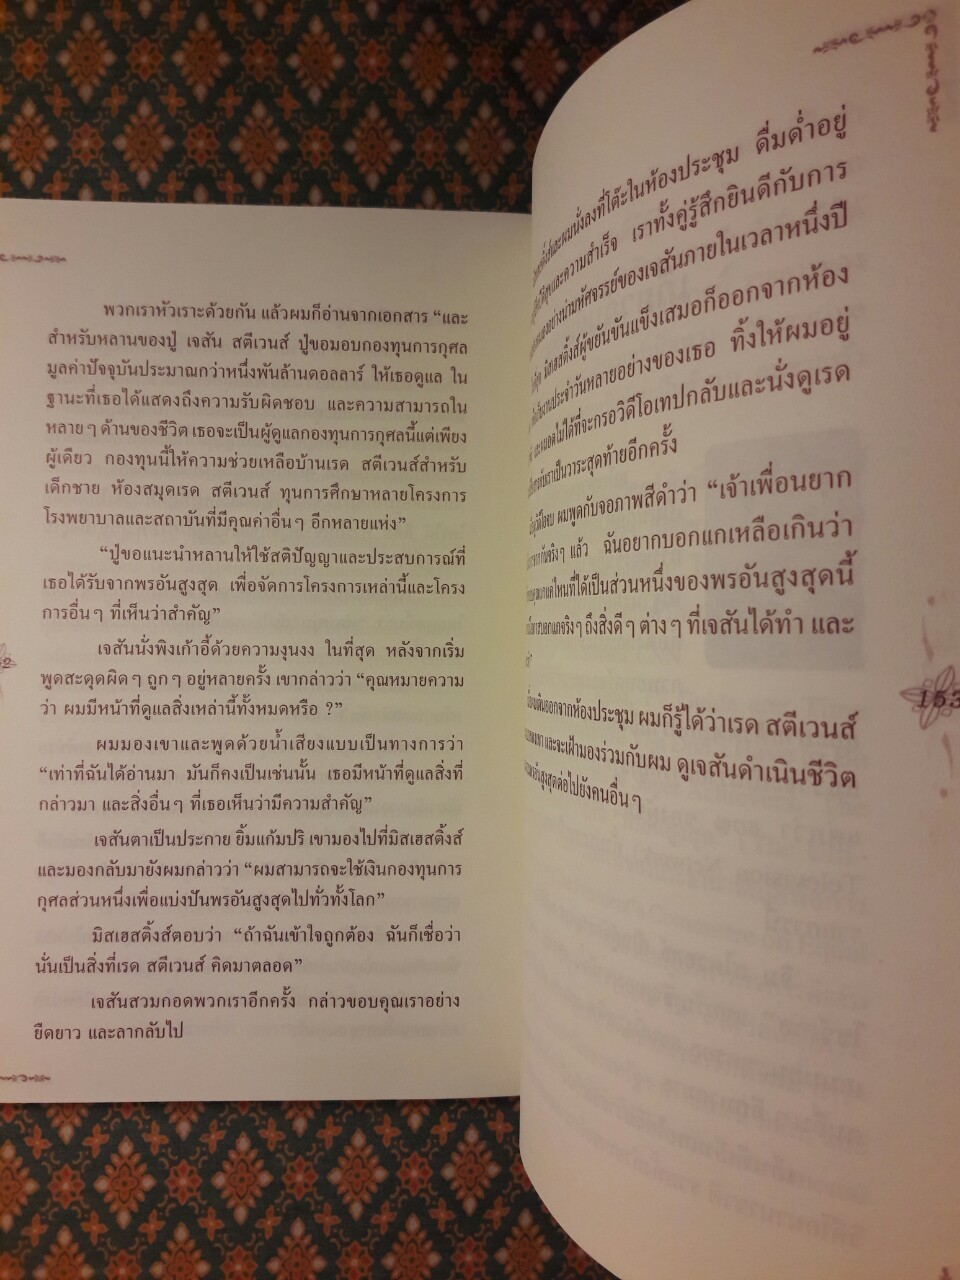 พวกเราหัวเราะด้วยกัน แล้วผมก็อ่านจากเอกสาร “และ
สำหรับหลานของปู่ เจสัน สตีเวนส์ ปู่ขอมอบกองทุนการกุศล
มูลค่าปัจจุบันประมาณกว่าหนึ่งพันล้านดอลลาร์ ให้เธอดูแล ใน
ฐานะที่เธอได้แสดงถึงความรับผิดชอบ และความสามารถใน
หลายๆ ด้านของชีวิต เธอจะเป็นผู้ดูแลกองทุนการกุศลนี้แต่เพียง
ผู้เดียว กองทุนนี้ให้ความช่วยเหลือบ้านเรด สตีเวนส์สำหรับ
เด็กชาย ห้องสมุดเรด สตีเวนส์ ทุนการศึกษาหลายโครงการ
โรงพยาบาลและสถาบันที่มีคุณค่าอื่นๆ อีกหลายแห่ง”
“ปู่ขอแนะนำหลานให้ใช้สติปัญญาและประสบการณ์ที่
เธอได้รับจากพรอันสูงสุด เพื่อจัดการโครงการเหล่านี้และโครง
การอื่นๆ ที่เห็นว่าสำคัญ”
เจสันนั่งพิงเก้าอี้ด้วยความงุนงง ในที่สุด หลังจากเริ่ม
พูดสะดุดผิดๆ ถูกๆ อยู่หลายครั้ง เขากล่าวว่า “คุณหมายความ
ว่า ผมมีหน้าที่ดูแลสิ่งเหล่านี้ทั้งหมดหรือ ?”
ผมมองเขาและพูดด้วยน้ำเสียงแบบเป็นทางการว่า
“เท่าที่ฉันได้อ่านมา มันก็คงเป็นเช่นนั้น เธอมีหน้าที่ดูแลสิ่งที่
กล่าวมา และสิ่งอื่นๆ ที่เธอเห็นว่ามีความสำคัญ”
เจสันตาเป็นประกาย ยิ้มแก้มปริ เขามองไปที่มิสเฮสติ้งส์
และมองกลับมายังผมกล่าวว่า “ผมสามารถจะใช้เงินกองทุนการ
กุศลส่วนหนึ่งเพื่อแบ่งปันพรอันสูงสุดไปทั่วทั้งโลก”
มิสเฮสติ้งส์ตอบว่า “ถ้าฉันเข้าใจถูกต้อง ฉันก็เชื่อว่า
นั่นเป็นสิ่งที่เรด สตีเวนส์ คิดมาตลอด”
เจสันสวมกอดพวกเราอีกครั้ง กล่าวขอบคุณเราอย่าง
ยืดยาว และลากลับไป
และผมนั่งลงที่โต๊ะในห้องประชุม ดื่มด่ำอยู่
และความสำเร็จ เราทั้งคู่รู้สึกยินดีกับการ
อย่างน่ามหัศจรรย์ของเจสันภายในเวลาหนึ่งปี
มิสเฮสติ้งส์ผู้ขยันขันแข็งเสมอก็ออกจากห้อง
ประจำวันหลายอย่างของเธอ ทิ้งให้ผมอยู่
ไม่ได้ที่จะกรอวิดีโอเทปกลับและนั่งดูเรด
เป็นวาระสุดท้ายอีกครั้ง
ผมพูดกับจอภาพสีดำว่า “เจ้าเพื่อนยาก
จริงๆ แล้ว ฉันอยากบอกแกเหลือเกินว่า
แค่ไหนที่ได้เป็นส่วนหนึ่งของพรอันสูงสุดนี้
บอกแกจริงๆ ถึงสิ่งดีๆ ต่างๆ ที่เจสันได้ทำ และ
เดินออกจากห้องประชุม ผมก็รู้ได้ว่าเรด สตีเวนส์
และจะเฝ้ามองร่วมกับผม ดูเจสันดำเนินชีวิต
ต่อไปยังคนอื่นๆ
153